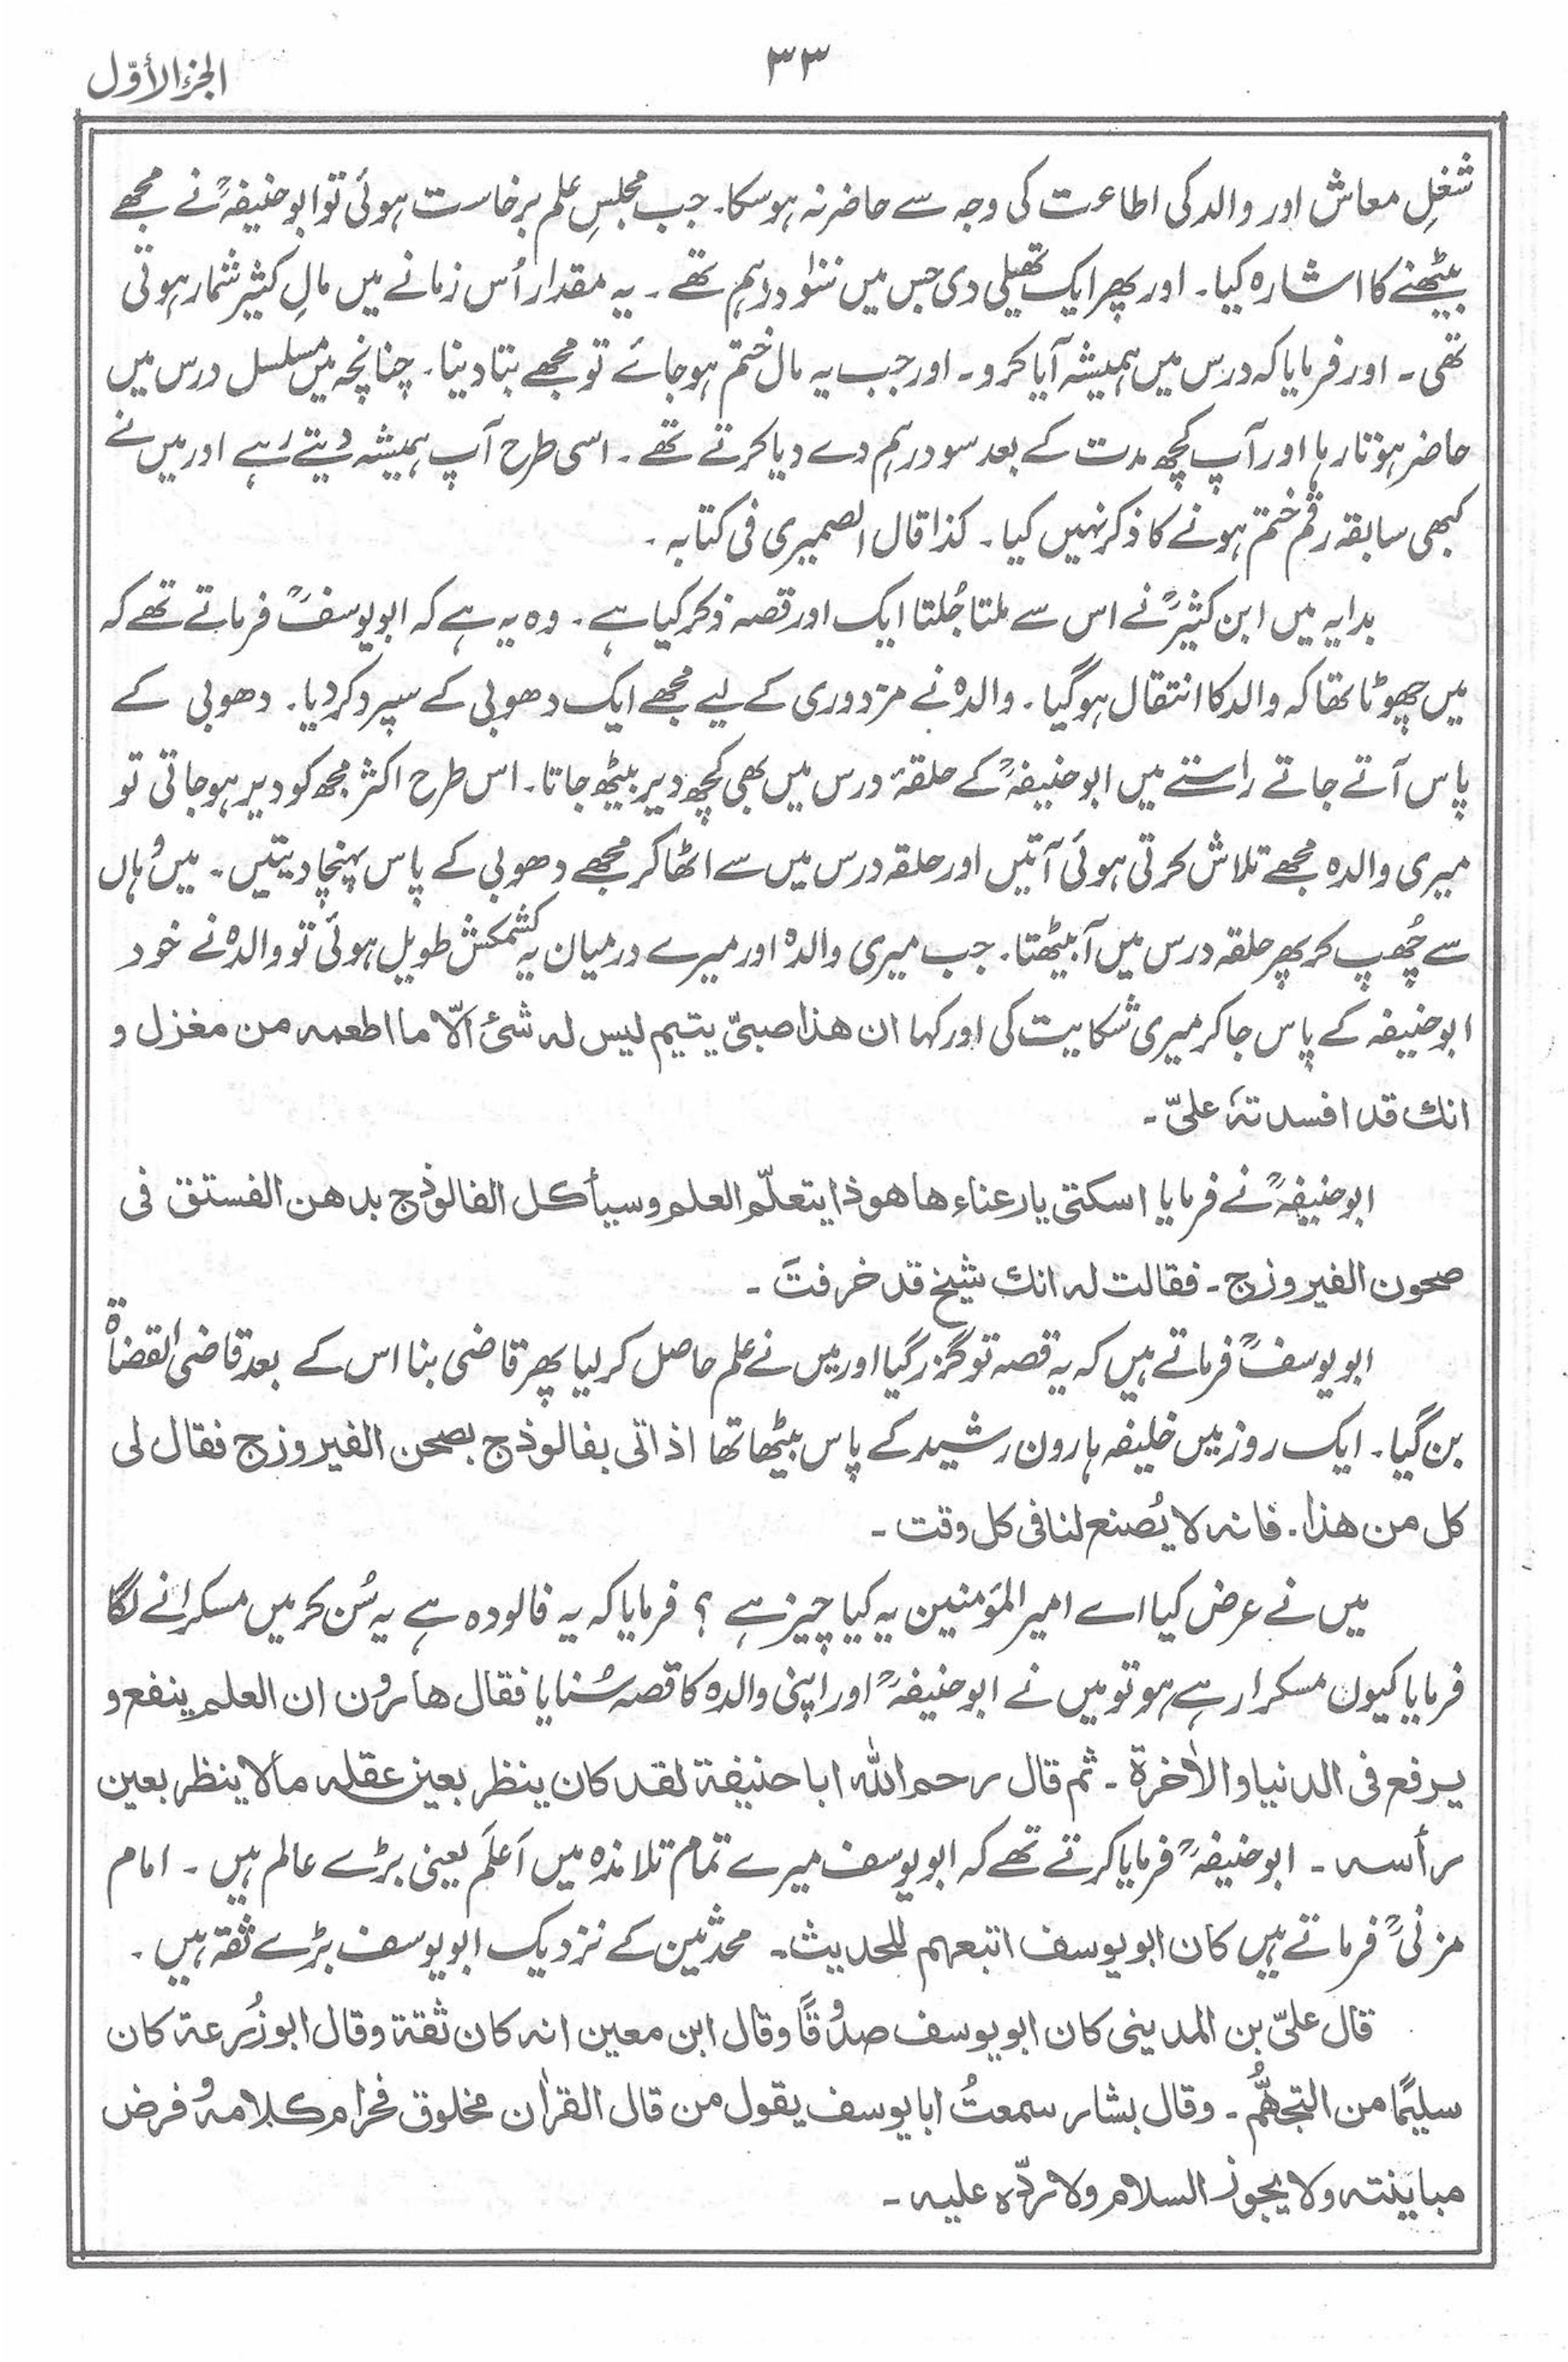 ٣٣
الجزء الأوّل
شغلِ معاش اور والد کی اطاعت کی وجہ سے حاضر نہ ہو سکا۔ جب مجلسِ علم برخاست ہوئی تو ابو حنیفہؒ نے مجھے
بیٹھنے کا اشارہ کیا۔ اور پھر ایک تھیلی دی جس میں ننلو درہم تھے۔ یہ مقدار اُس زمانے میں مالِ کثیر شمار ہوتی
تھی۔ اور فرمایا کہ درس میں ہمیشہ آیا کرو۔ اور جب یہ مال ختم ہو جائے تو مجھے بتا دینا۔ چنانچہ میں مسلسل درس میں
حاضر ہوتا رہا اور آپ کچھ مدت کے بعد سو درہم دے دیا کرتے تھے۔ اسی طرح آپ ہمیشہ دیتے رہے اور میں نے
کبھی سابقہ رقم ختم ہونے کا ذکر نہیں کیا۔ کذا قال الصمیری فی کتابہ۔
بدایہ میں ابن کثیرؒ نے اس سے ملتا جُلتا ایک اور قصہ ذکر کیا ہے۔ وہ یہ ہے کہ ابو یوسفؒ فرماتے تھے کہ
میں چھوٹا تھا کہ والد کا انتقال ہو گیا۔ والدہ نے مزدوری کے لیے مجھے ایک دھوبی کے سپرد کر دیا۔ دھوبی کے
پاس آتے جاتے راستے میں ابو حنیفہؒ کے حلقۂ درس میں بھی کچھ دیر بیٹھ جاتا۔ اس طرح اکثر مجھ کو دیر ہو جاتی تو
میری والدہ مجھے تلاش کرتی ہوئی آتیں اور حلقہ درس میں سے اٹھا کر مجھے دھوبی کے پاس پہنچا دیتیں۔ میں وہاں
سے چُھپ کر پھر حلقہ درس میں آ بیٹھتا۔ جب میری والدہ اور میرے درمیان یہ کشمکش طویل ہوئی تو والدہ نے خود
ابو حنیفہ کے پاس جا کر میری شکایت کی اور کہا ان ھذا صبیّ یتیم لیس لہ شئ الّا ما اطعمہ من مغزل و
انك قد افسدتہ علیّ۔
ابو حنیفہؒ نے فرمایا اسکتی یا رعناء ھا ھو ذا یتعلّم العلم وسیأکل الفالوذج بدھن الفستق فی
صحون الفیروزج۔ فقالت لہ انك شیخ قد خرفتَ۔
ابو یوسفؒ فرماتے ہیں کہ یہ قصہ تو گزر گیا اور میں نے علم حاصل کر لیا پھر قاضی بنا اس کے بعد قاضی القضاۃ
بن گیا۔ ایک روز میں خلیفہ ہارون رشید کے پاس بیٹھا تھا اذ اتی بفالوذج بصحن الفیروزج فقال لی
کل من ھذا۔ فانہ لا یُصنع لنا فی کل وقت۔
میں نے عرض کیا اے امیر المؤمنین یہ کیا چیز ہے ؟ فرمایا کہ یہ فالودہ ہے یہ سُن کر میں مسکرانے لگا
فرمایا کیوں مسکرا رہے ہو تو میں نے ابو حنیفہؒ اور اپنی والدہ کا قصہ سُنایا فقال ھارون ان العلم ینفع و
یرفع فی الدنیا والاٰخرۃ۔ ثم قال رحم اللہ ابا حنیفۃ لقد کان ینظر بعین عقلہ ما لا ینظر بعین
رأسہ۔ ابو حنیفہؒ فرمایا کرتے تھے کہ ابو یوسف میرے تمام تلامذہ میں اَعلَم یعنی بڑے عالم ہیں۔ امام
مزنیؒ فرماتے ہیں کان ابو یوسف اتبعھم للحدیث۔ محدثین کے نزدیک ابو یوسف بڑے ثقہ ہیں۔
قال علیّ بن المدینی کان ابو یوسف صدوقًا وقال ابن معین انہ کان ثقۃ وقال ابو زُرعۃ کان
سلیمًا من التجھُّم۔ وقال بشار سمعتُ ابا یوسف یقول من قال القراٰن مخلوق فحرام کلامہ وفرض
مباینتہ ولا یجوز السلام ولا ردّہ علیہ۔